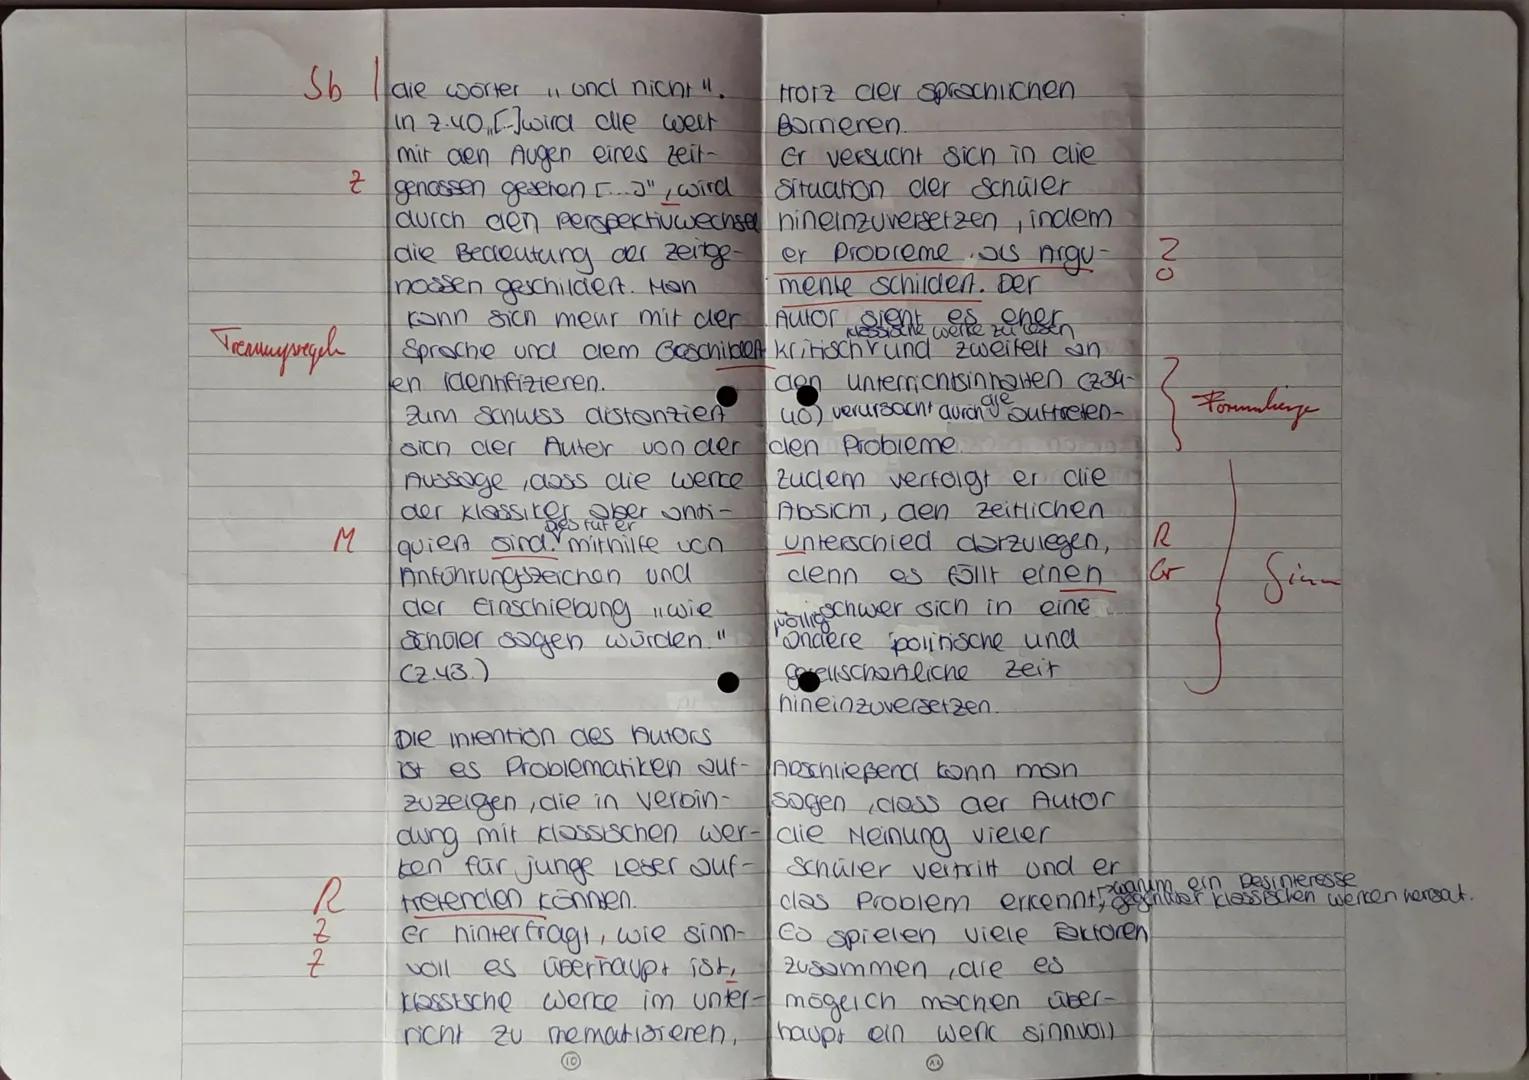 Sb | die wörter „und nicht".
In Z.40 „[...] wird die Welt
mit den Augen eines Zeit-
Z genossen gesehen [...]", wird
durch den Perspektivwechsel
die Bedeutung der Zeitge-
nossen geschildert. Man
kann sich mehr mit der
Trennungsregeln Sprache und dem Geschildert
en identifizieren.
Zum Schluss distanziert
sich der Autor von der
Aussage, dass die Werke
der Klassiker aber anti-
des für er
M quiert sind. mithilfe von
Anführungszeichen und
der Einschiebung „wie
Schüler sagen würden."
(Z.43.)
Die Intention des Autors
ist es Problematiken auf-
zuzeigen, die in Verbin-
dung mit klassischen Wer-
ken für junge Leser auf-
R tretenden können.
Z Er hinterfragt, wie sinn-
Z voll es überhaupt ist,
klassische Werke im Unter-
richt zu thematisieren,
10
trotz der sprachlichen
Barrieren.
Er versucht sich in die
Situation der Schüler
hineinzuversetzen, indem
er Probleme als Argu-
mente schildert. Der
Autor sieht es eher
klassische Werke zu lesen
kritisch und zweifelt an
den Unterrichtsinhalten (Z39-
40) verursacht durch die auftreten-
den Probleme.
Zudem verfolgt er die
Absicht, den zeitlichen
Unterschied darzulegen, R
denn es fällt einen Gr Sinn
völlig schwer sich in eine
andere politische und
gesellschaftliche Zeit
hineinzuversetzen.
Abschließend kann man
sagen, dass der Autor
die Meinung vieler
Schüler vertritt und er
das Problem erkennt, warum ein Desinteresse
gegenüber klassischen Werken herrscht.
Es spielen viele Faktoren
zusammen, die es
möglich machen über-
haupt ein Werk sinnvoll
11